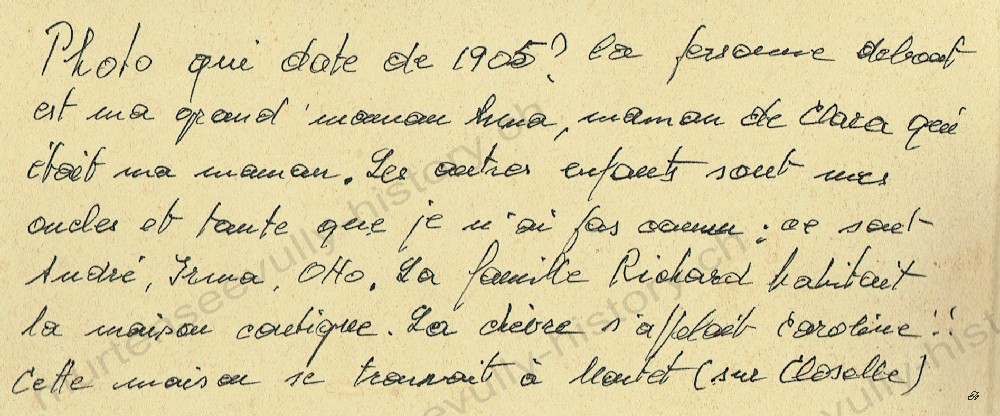 Photo qui date de 1905? la personne debout
est ma grand'maman Anna, maman de Clara qui
était ma maman. Les autres enfants sont mes
oncles et tante que je n'ai pas connu : ce sont
André, Irma, Otto. La famille Richard habitait
la maison contigue. La chèvre s'appelait Caroline!!
Cette maison se trouvait à Montet (sur Closalle)
murtensee-vully-history.ch